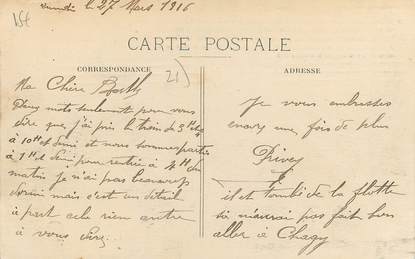 le 27 Mars 1916
CARTE POSTALE
CORRESPONDANCE
ADRESSE
21)
Ma Chère
Deux mots seulement pour vous
dire que j'ai pris le train de 3H
à 10H et demi et nous sommes partis
à 1H et demi pour rentrer à 4H du
matin je n'ai pas beaucoup
dormi mais c'est un détail
à part cela rien autre
à vous dire
Je vous embrasse
encore une fois de plus
il est tombé de la flotte
si n'aurai pas fait bon
aller à Chagy